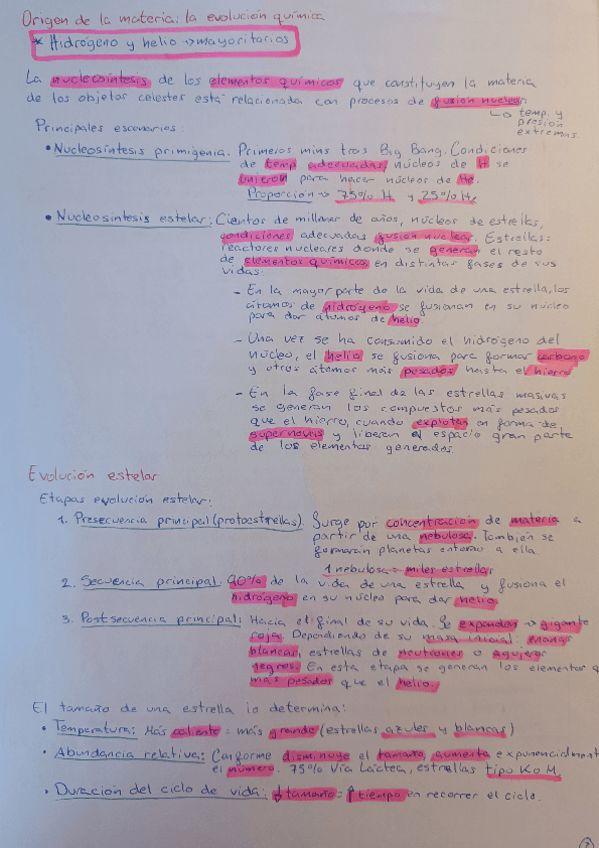 Origen de la materia: la evolución química
* Hidrógeno y helio → mayoritarios
La nucleosíntesis de los elementos químicos que constituyen la materia
de los objetos celestes está relacionada con procesos de fusión nuclear
↳ temp. y
presión
extremas.
Principales escenarios:
• Nucleosíntesis primigenia. Primeros mins tras Big Bang. Condiciones
de temp adecuadas, núcleos de H se
unieron para hacer núcleos de He.
Proporción → 75% H y 25% He
• Nucleosíntesis estelar: Cientos de millones de años, núcleos de estrellas,
condiciones adecuadas fusión nuclear. Estrellas =
reactores nucleares donde se generan el resto
de elementos químicos en distintas fases de sus
vidas:
- En la mayor parte de la vida de una estrella, los
átomos de hidrógeno se fusionan en su núcleo
para dar átomos de helio.
- Una vez se ha consumido el hidrógeno del
núcleo, el helio se fusiona para formar carbono
y otros átomos más pesados hasta el hierro
- En la fase final de las estrellas masivas
se generan los compuestos más pesados
que el hierro, cuando explotan en forma de
supernovas y liberan al espacio gran parte
de los elementos generados
Evolución estelar
Etapas evolución estelar:
1. Presecuencia principal (protoestrellas). Surge por concentración de materia a
partir de una nebulosa. También se
formarán planetas entorno a ella.
1 nebulosa = miles estrellas
2. Secuencia principal: 90% de la vida de una estrella y fusiona el
hidrógeno en su núcleo para dar helio.
3. Postsecuencia principal: Hacia el final de su vida. Se expanden → gigante
roja. Dependiendo de su masa inicial: enanas
blancas, estrellas de neutrones o agujeros
negros. En esta etapa se generan los elementos
más pesados que el helio.
El tamaño de una estrella lo determina:
• Temperatura: Más caliente = más grande (estrellas azules y blancas)
• Abundancia relativa: Conforme disminuye el tamaño, aumenta exponencialment
el número. 75% Vía Láctea, estrellas tipo K o M.
• Duración del ciclo de vida: ↓ tamaño = ↑ tiempo en recorrer el ciclo.